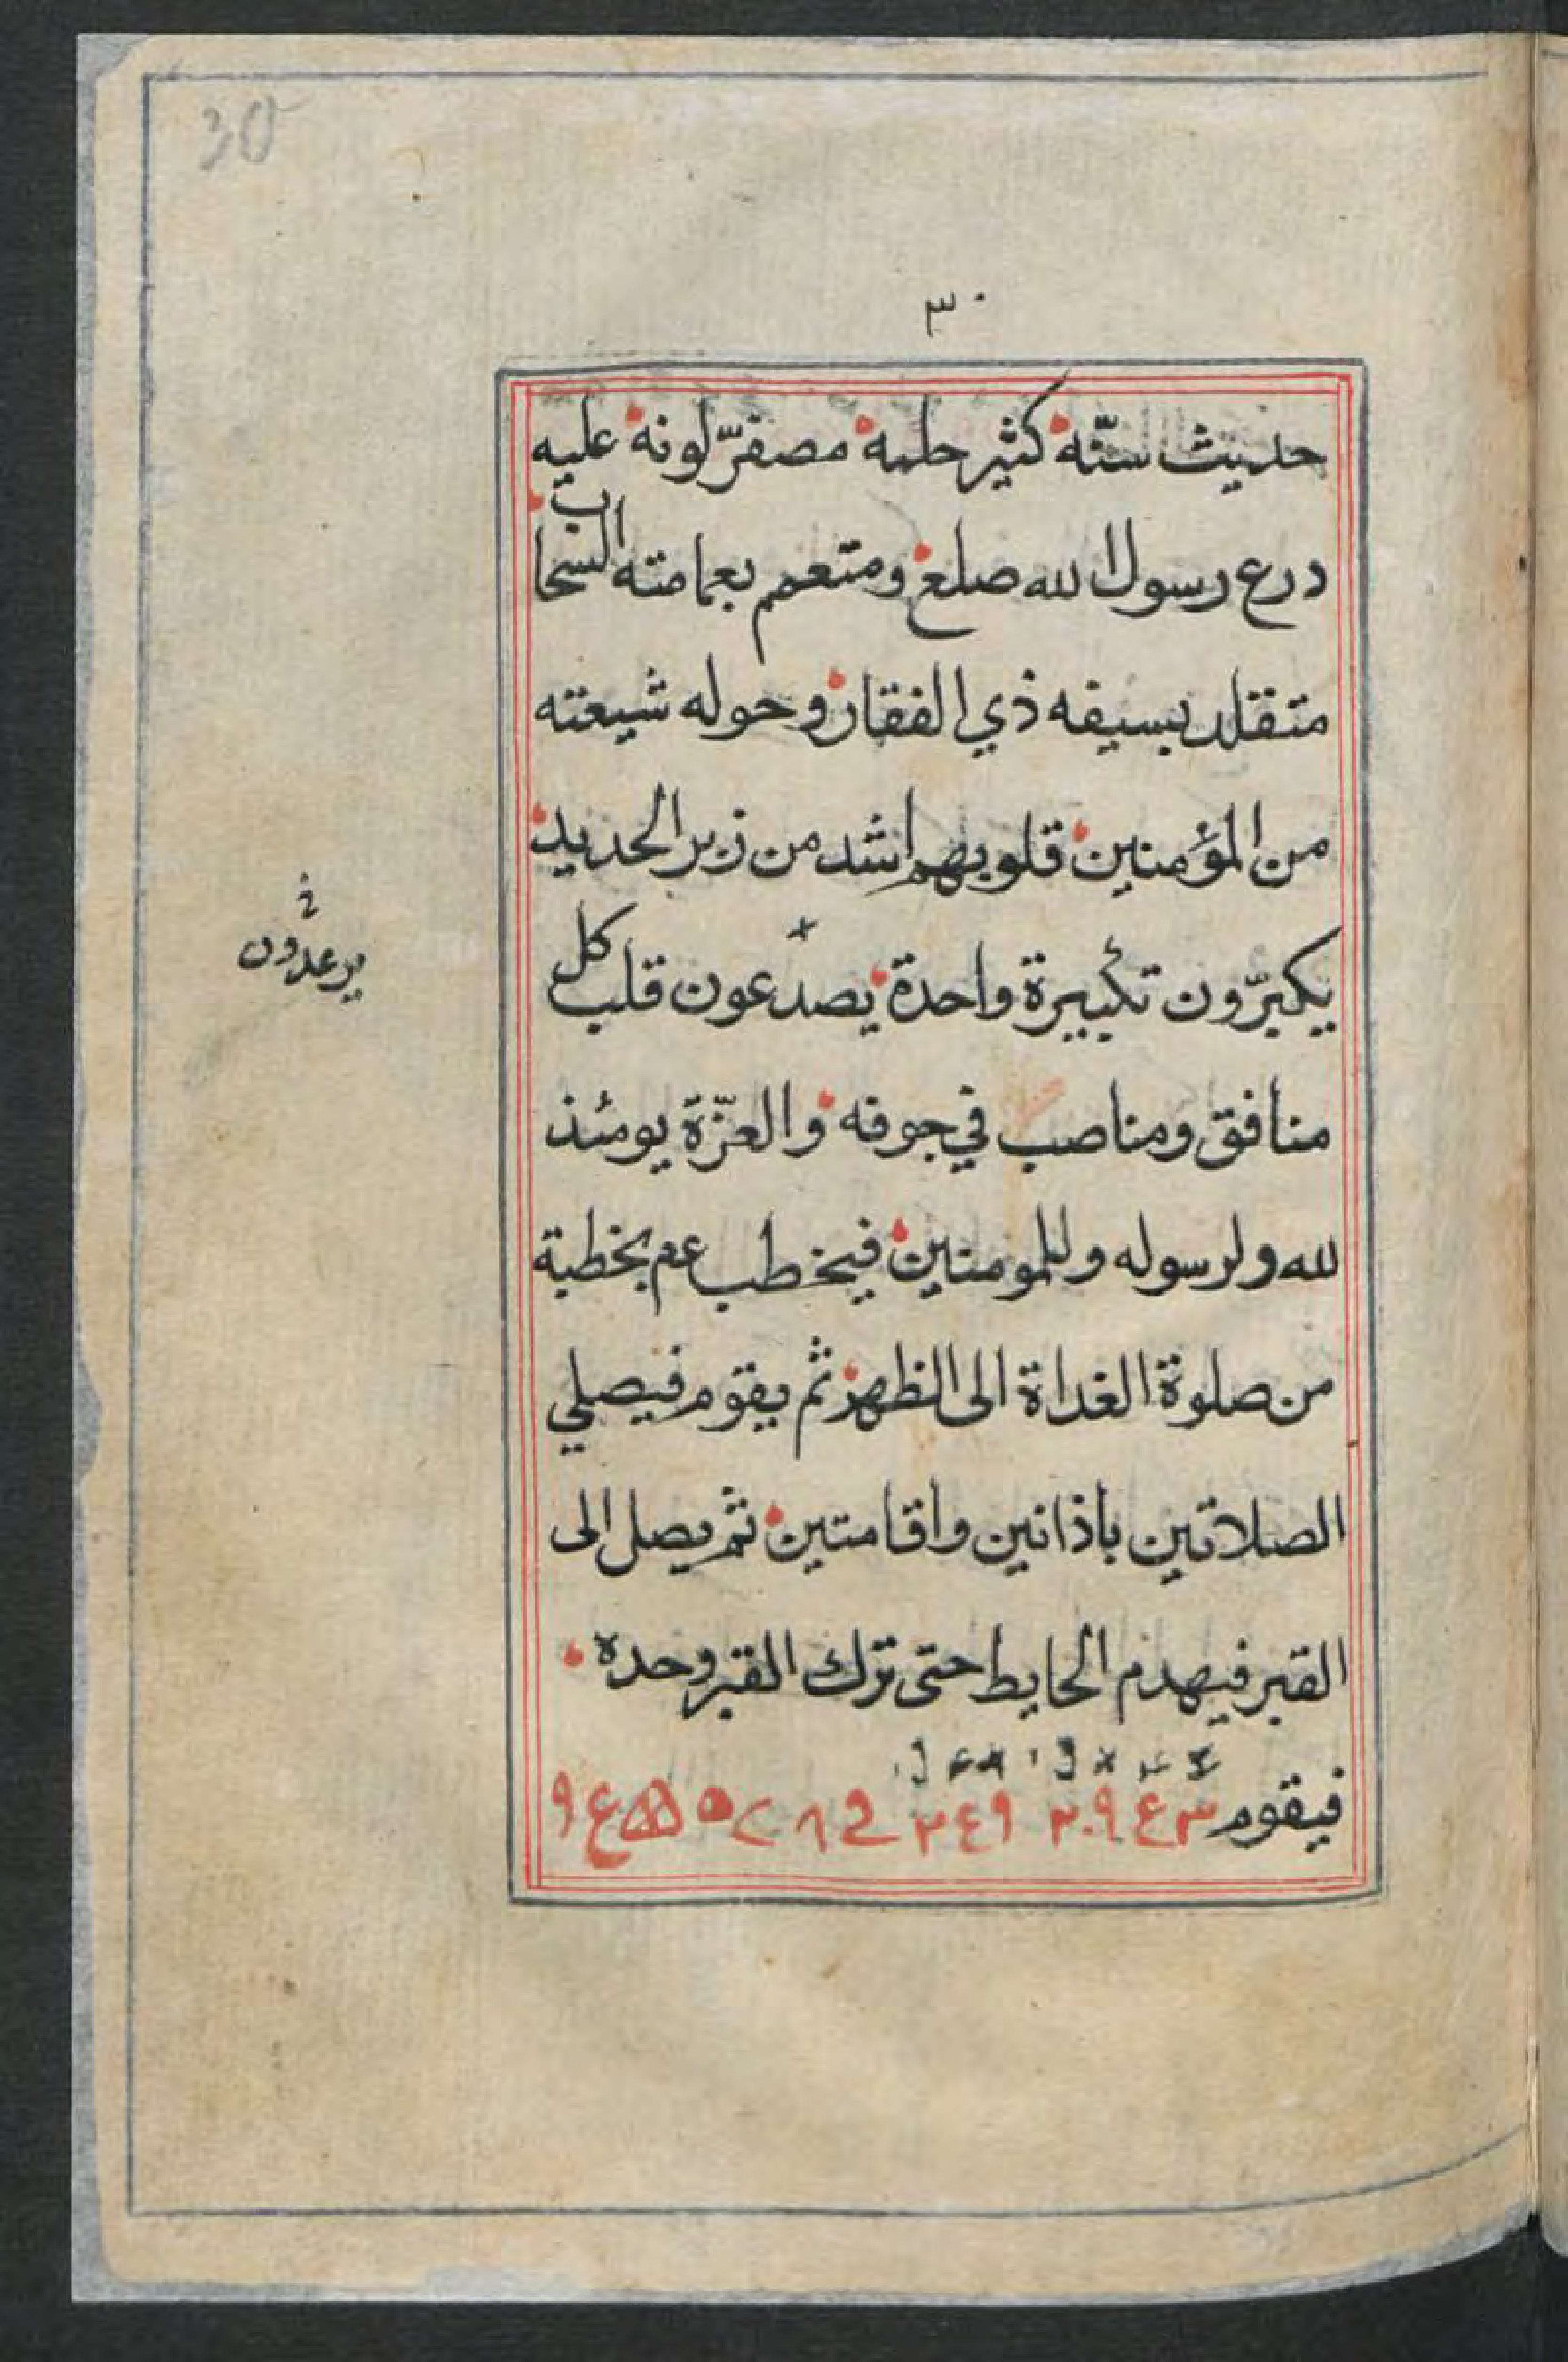 30
٣٠
حديث سنّه كثير حلمه مصفرّ لونه عليه
درع رسول الله صلع ومتعمم بعمامته السحاب
متقلد بسيفه ذي الفقار وحوله شيعته
من المؤمنين قلوبهم اشد من زبر الحديد
يكبرّون تكبيرة واحدة يصدّعون قلب كل
يرعدون
منافق ومناصب في جوفه والعزّة يومئذ
لله ولرسوله وللمومنين فيخطب عم بخطبة
من صلوة الغداة الى الظهر ثم يقوم فيصلي
الصلاتين باذانين واقامتين ثم يصل الى
القبر فيهدم الحايط حتى ترك القبر وحده
فيقوم